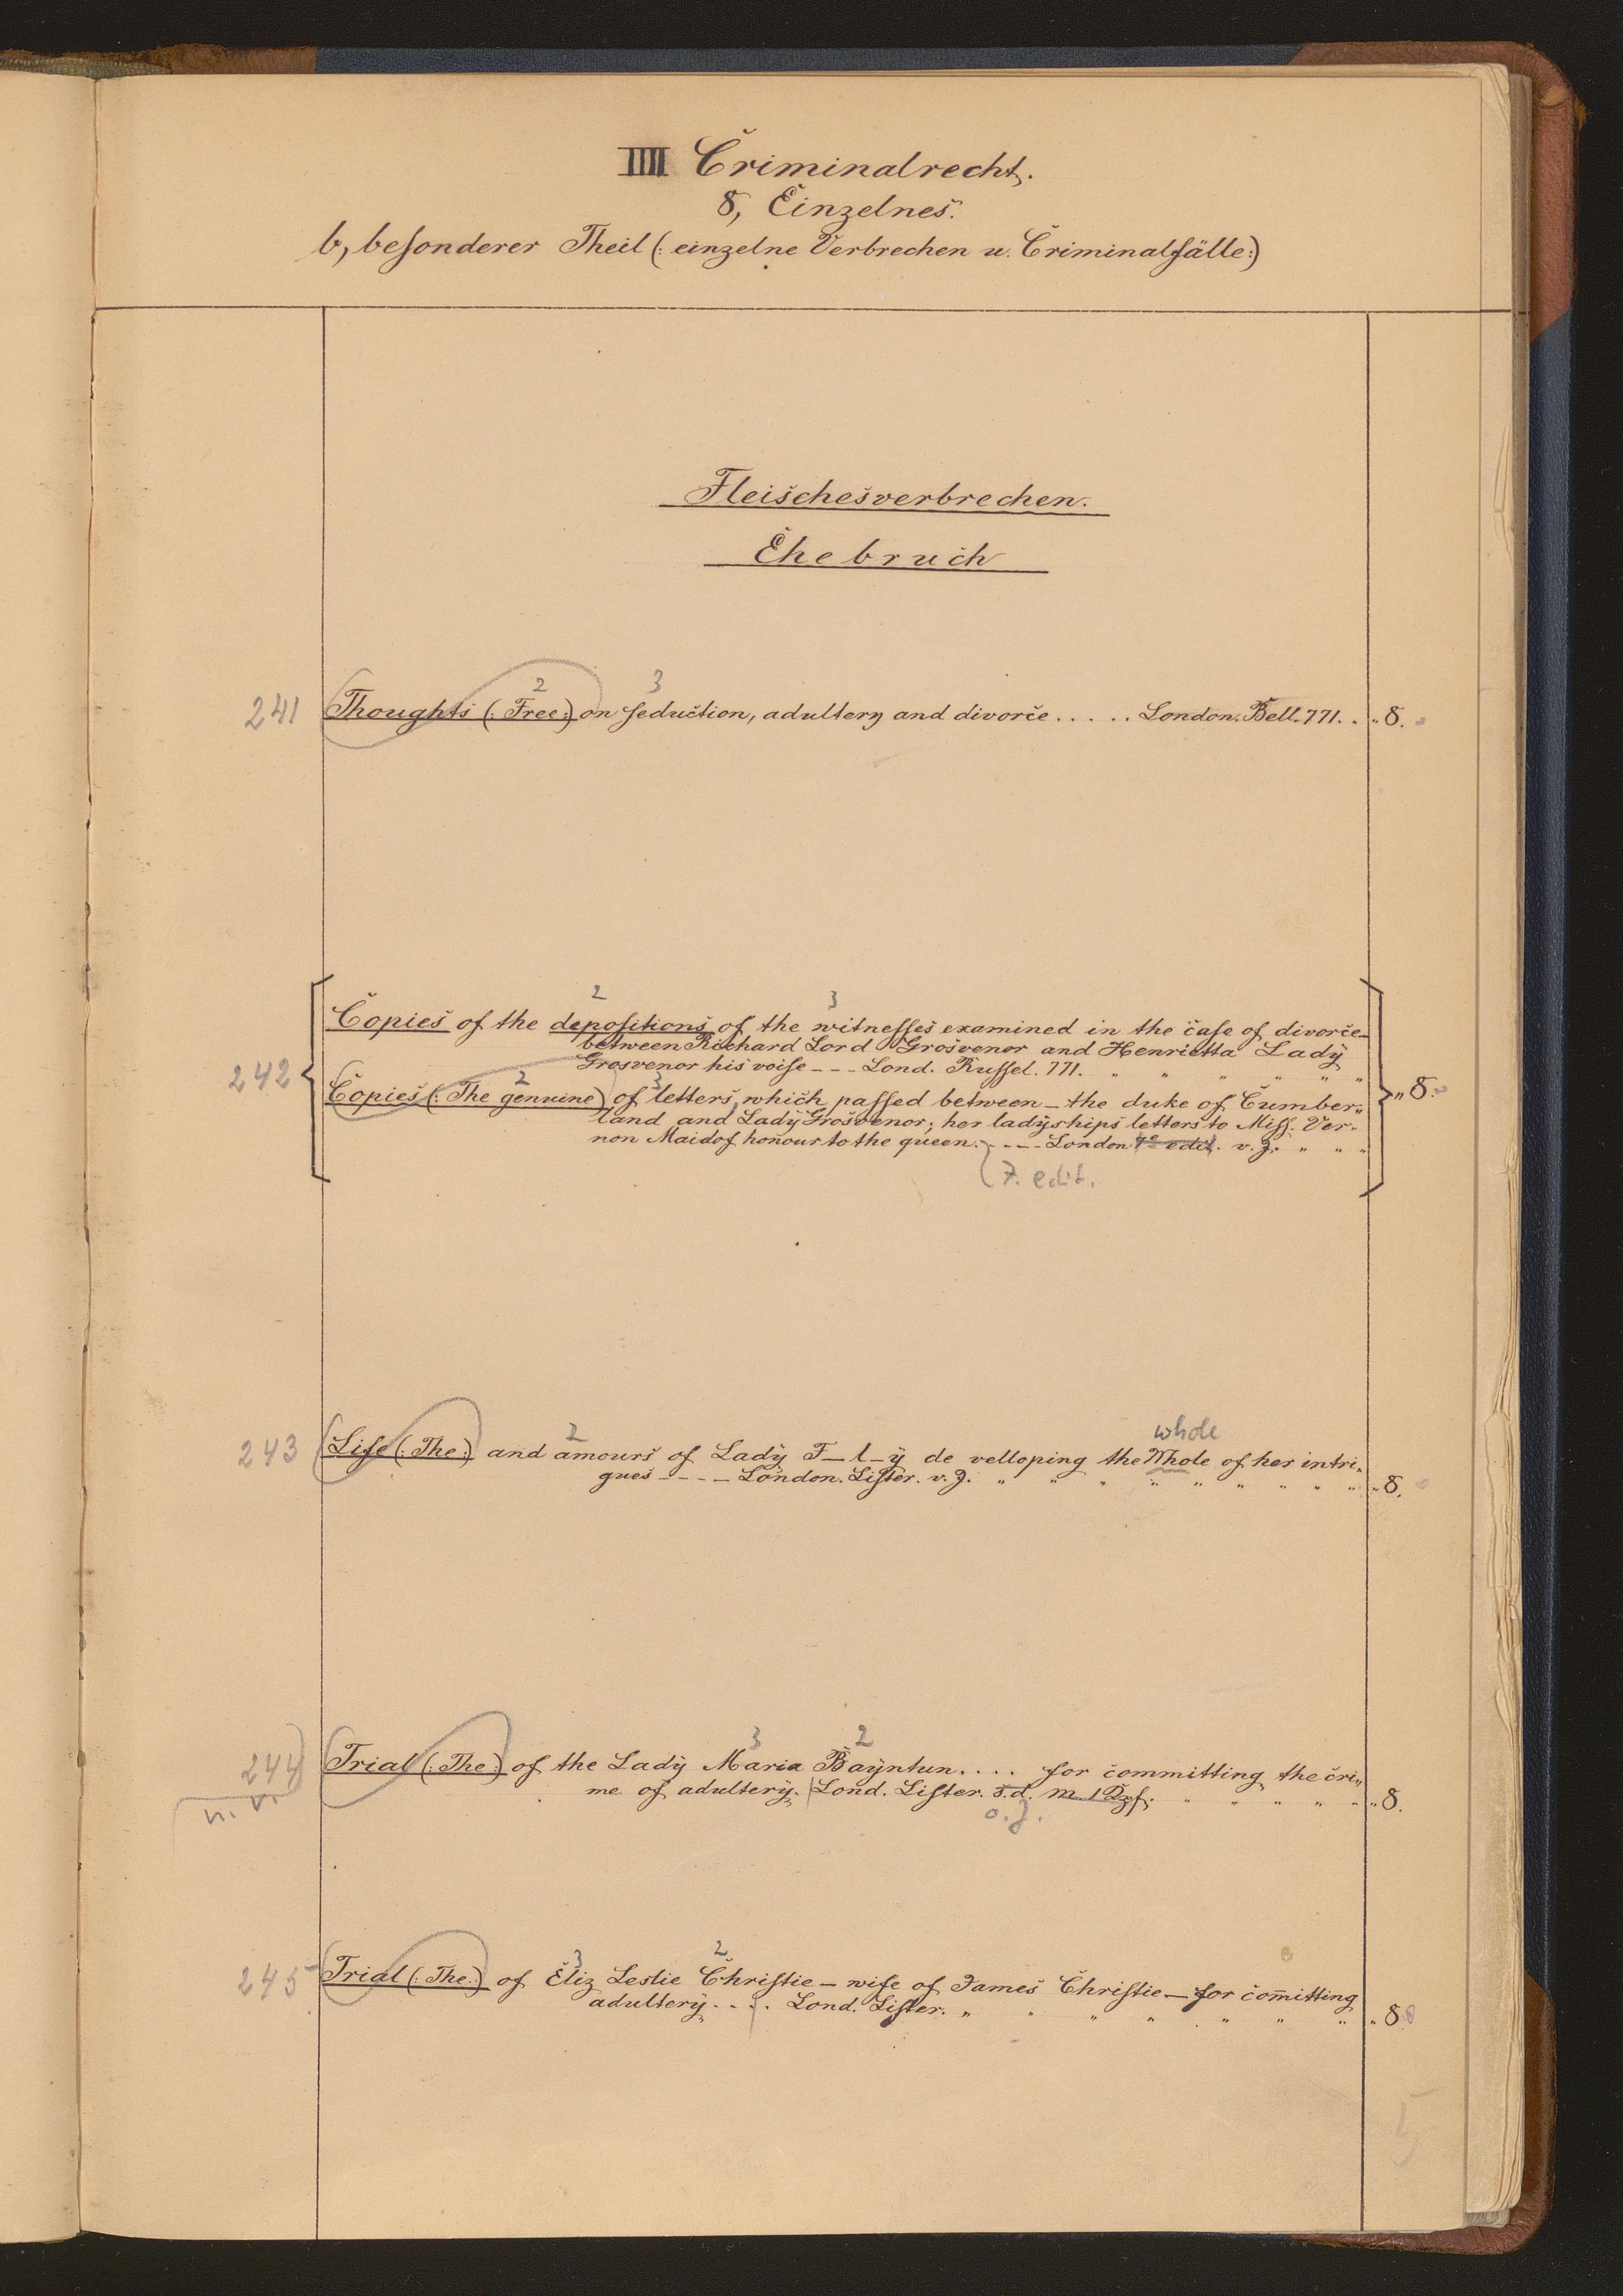 IIII Criminalrecht.
8, Einzelnes.
b, besonderer Theil (: einzelne Verbrechen u. Criminalfälle:)
Fleischesverbrechen.
Ehebruch
2 3
241 Thoughts (: Free:) on seduction, adultery and divorce ..... London. Bell. 771. „ „ 8.
2 3
Copies of the depositions of the witnesses examined in the case of divorce
between Richard Lord Grosvenor and Henrietta Lady
Grosvenor his voise --- Lond. Russel. 771. „ „ „ „ „ „
242 „ 8.
2 3
Copies (: The genuine) of letters, which passed between – the duke of Cumber„
land and Lady Grosvenor; her ladyships letters to Miss. Ver„
non Maid of honour to the queen. ---- London 7e edit. v. J. „ „ „
7. edit.
2 whole
243 Life (: The:) and amours of Lady F–l–y de velloping the Whole of her intri„
gues ---- London. Lister. v. J. „ „ „ „ „ „ „ „ „ „ 8.
3 2
244 Trial (: The:) of the Lady Maria Bayntun .... for committing the cri„
me of adultery. Lond. Lister. s. d. m. 1 Kpf. „ „ „ „ „ „ 8.
n. v. o. J.
3 2
245 Trial (: The:) of Eliz Leslie Christie – wife of James Christie – for com̄itting
adultery .... Lond. Lister. „ „ „ „ „ „ „ „ 8.